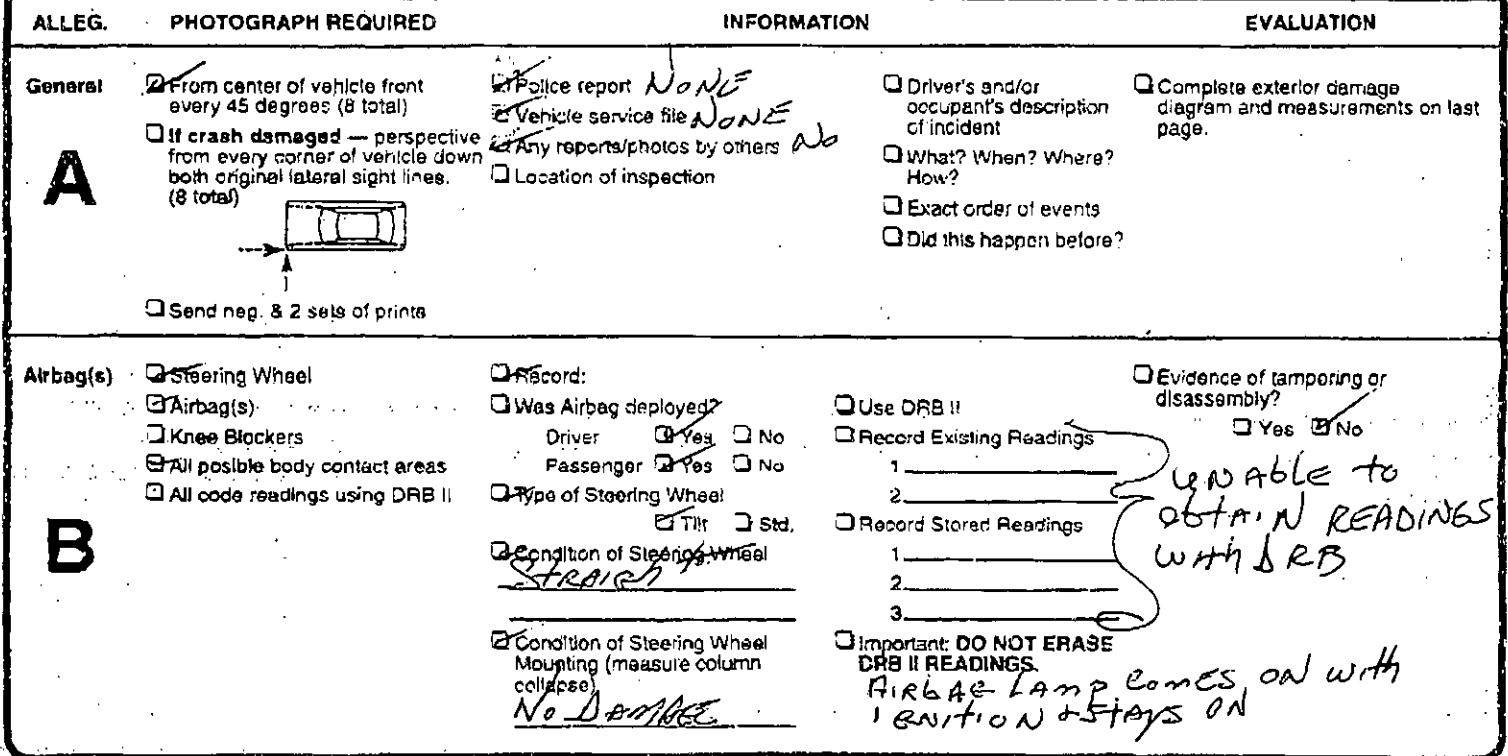 ALLEG. PHOTOGRAPH REQUIRED INFORMATION EVALUATION
General
A
From center of vehicle front
every 45 degrees (8 total)
If crash damaged — perspective
from every corner of vehicle down
both original lateral sight lines.
(8 total)
Send neg. & 2 sets of prints
Police report NONE
Vehicle service file NONE
Any reports/photos by others No
Location of inspection
Driver's and/or
occupant's description
of incident
What? When? Where?
How?
Exact order of events
Did this happen before?
Complete exterior damage
diagram and measurements on last
page.
Airbag(s)
B
Steering Wheel
Airbag(s)
Knee Blockers
All posible body contact areas
All code readings using DRB II
Record:
Was Airbag deployed?
Driver Yes No
Passenger Yes No
Type of Steering Wheel
Tilt Std.
Condition of Steering Wheel
STRAIGHT
Condition of Steering Wheel
Mounting (measure column
collapse)
No DAMAGE
Use DRB II
Record Existing Readings
1
2
Record Stored Readings
1
2
3
Important: DO NOT ERASE
DRB II READINGS.
AIRBAG LAMP comes ON with
IGNITION & STAYS ON
Evidence of tampering or
disassembly?
Yes No
UNABLE to
obtAIN READINGS
WITH DRB